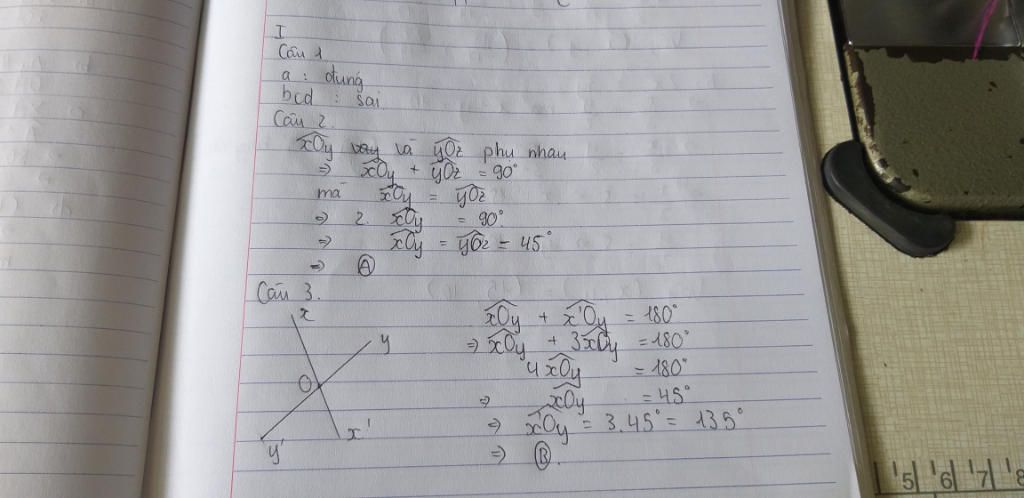 I
Câu 1
a : đung
bcd : sai
Câu 2.
xOy và yOz phu nhau
⇒ xOy + yOz = 90°
mà xOy = yOz
⇒ 2. xOy = 90°
⇒ xOy = yOz = 45°
⇒ A
Câu 3.
x
y
O
y'
x'
xOy + x'Oy = 180°
⇒ xOy + 3xOy = 180°
4 xOy = 180°
⇒ xOy = 45°
⇒ x'Oy = 3.45° = 135°
⇒ B.
5 6 7 8